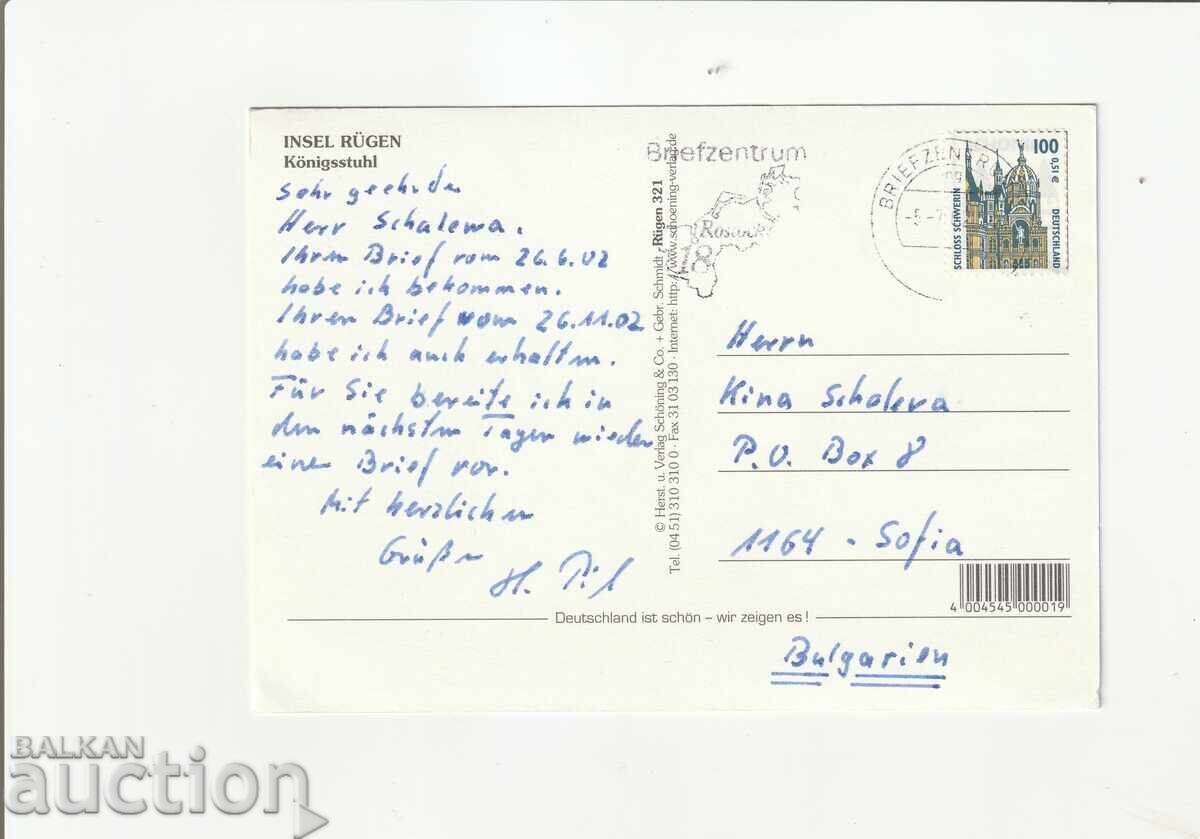 INSEL RÜGEN
Königsstuhl
Sehr geehrter
Herr Schalewa.
Ihren Brief vom 26.6.02
habe ich bekommen.
Ihren Brief vom 26.11.02
habe ich auch erhalten.
Für Sie bereite ich in
den nächsten Tagen wieder
einen Brief vor.
Mit herzlichen
Grüßen
H.
© Herst. u. Verlag Schöning & Co. + Gebr. Schmidt · Rügen 321
Tel. (04 51) 310 310 0 · Fax 31 03 130 · Internet: http://www.schoening-verlag.de
Briefzentrum
Rostock
18
BRIEFZENTRUM
100
0,51€
SCHLOSS SCHWERIN
DEUTSCHLAND
Herrn
Kina Schaleva
P.O. Box 8
1164 - Sofia
4 004545 000019
Deutschland ist schön – wir zeigen es!
Bulgarien
BALKAN
auction